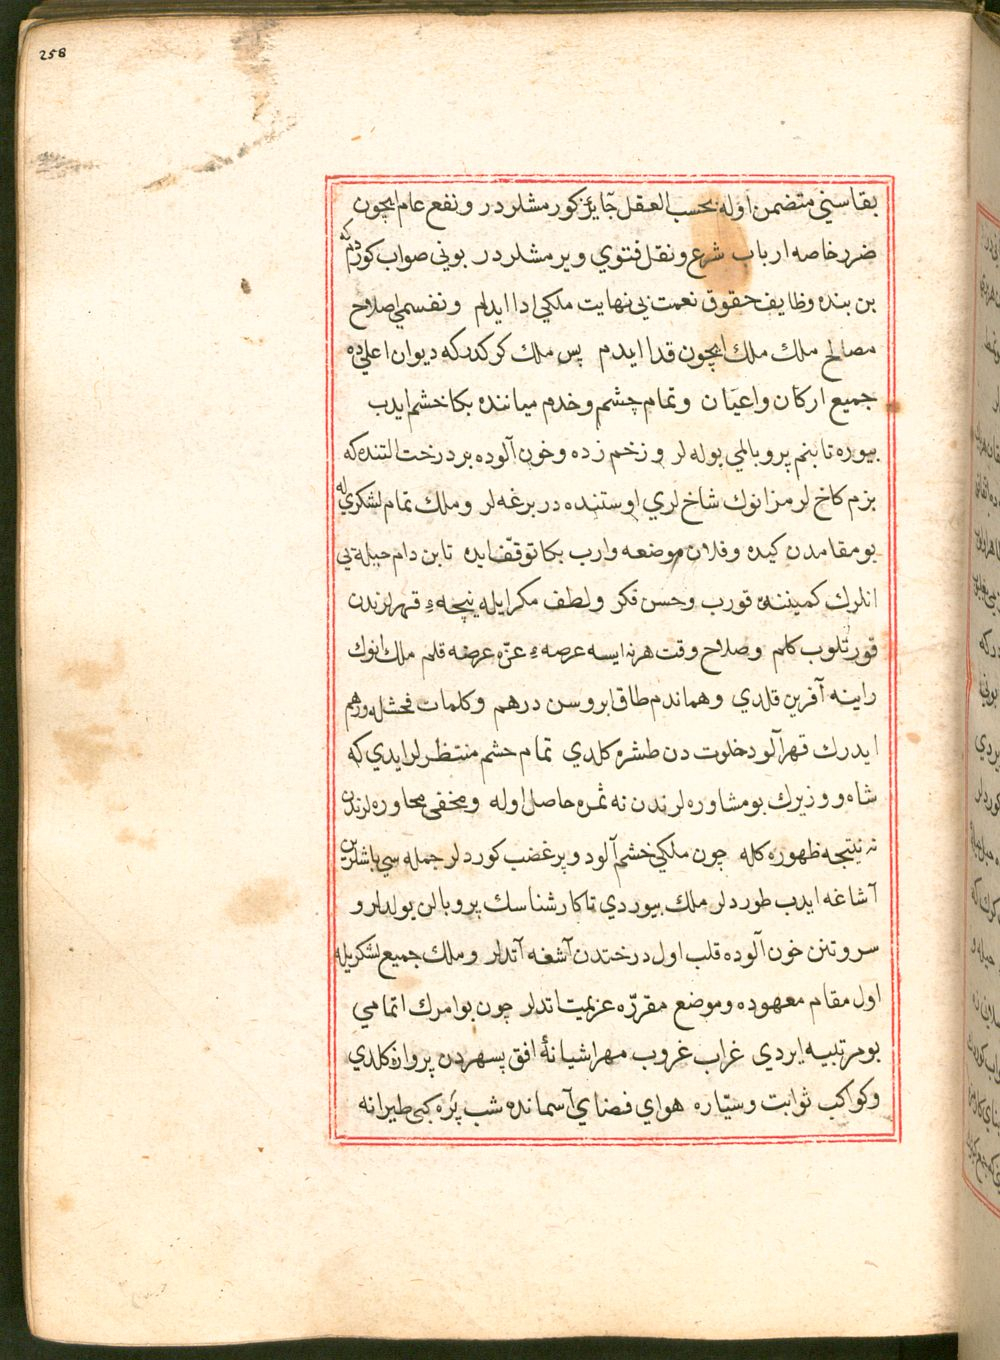 258
بقاسني متضمن اوله بحسب العقل جايز كورمشلردر و نفع عام ايچون
ضرر خاصه ارباب شرع و نقل فتوي ويرمشلردر بوني صواب كوردم كه
بن بنده وظايف حقوق نعمت بي نهايت ملكي ادا ايدام و نفسمي اصلاح
مصالح ملك ملك ايچون فدا ايدم پس ملك كركدر كه ديوان اعلي ده
جميع اركان و اعيان و تمام چشم و خدم مياننده بكا خشم ايدب
بيوره تا بنم پر و بالمي يوله لر و زخم زده و خون آلوده بر درخت التنده كه
بزم كاخ لرمز انوك شاخ لري اوستنده در برغه لر و ملك تمام لشكري له
بو مقامدن كيده و فلان موضعه وارب بكا توقف ايده تا بن دام حيله يي
انلرك كميننده قورب و حسن فكر و لطف مكر ايله پنچهء قهرلرندن
قورتلوب كلم و صلاح وقت هر نه ايسه عرصهء عزه عرضه قلم ملك انوك
راينه آفرين قلدي و هماندم طاق ابروسن درهم و كلمات فحشله
ايدرك قهرآلود خلوت دن طشره كلدي تمام حشم منتظرلر ايدي كه
شاه و وزيرك بو مشاوره لرندن نه ثمره حاصل اوله و مخفي محاوره لرندن
نه نتيجه ظهوره كله چون ملكي خشم آلود و پر غضب كوردلر جمله سي باشلرين
آشاغه ايدب طوردلر ملك بيوردي تا كارشناسك پر و بالن يولدلر و
سر و تنن خون آلوده قلب اول درختدن آشغه آتدلر و ملك جميع لشكريله
اول مقام معهوده و موضع مقرره عزيمت اتدلر چون بو امرك اتمامي
بو مرتبيه ايردي غراب غروب مهر اشيانهٔ افق پسهردن پروازه كلدي
و كواكب ثوابت و سياره هواي فضاي آسمانده شب پره كبي طيرانه